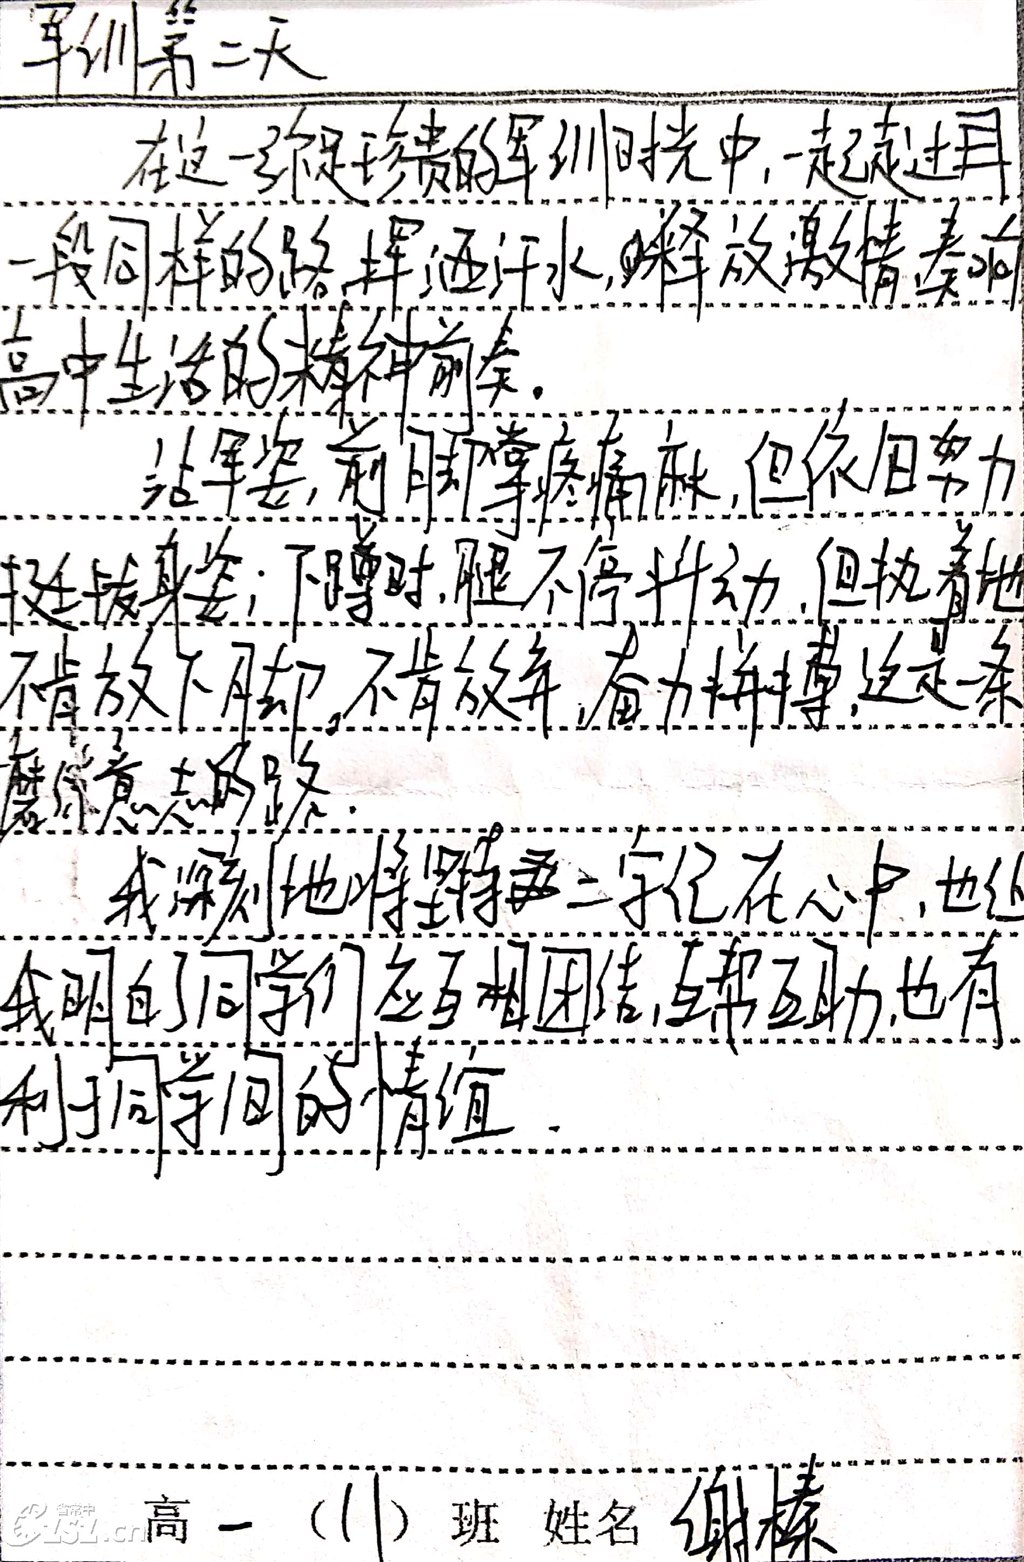 军训第二天
在这一弥足珍贵的军训时光中,一起走过
一段同样的路,挥洒汗水,释放激情奏响
高中生活的精神前奏.
站军姿,前脚掌疼痛麻,但依旧努力
挺拔身姿;下蹲时,腿不停抖动,但执着地
不肯放下脚,不肯放弃,奋力拼搏,这是一条
磨练意志的路.
我深刻地将坚持二字记在心中,也让
我明白了同学们应互相团结,互帮互助,也有
利于同学间的情谊.
高一(11)班 姓名 谢榛
省常中